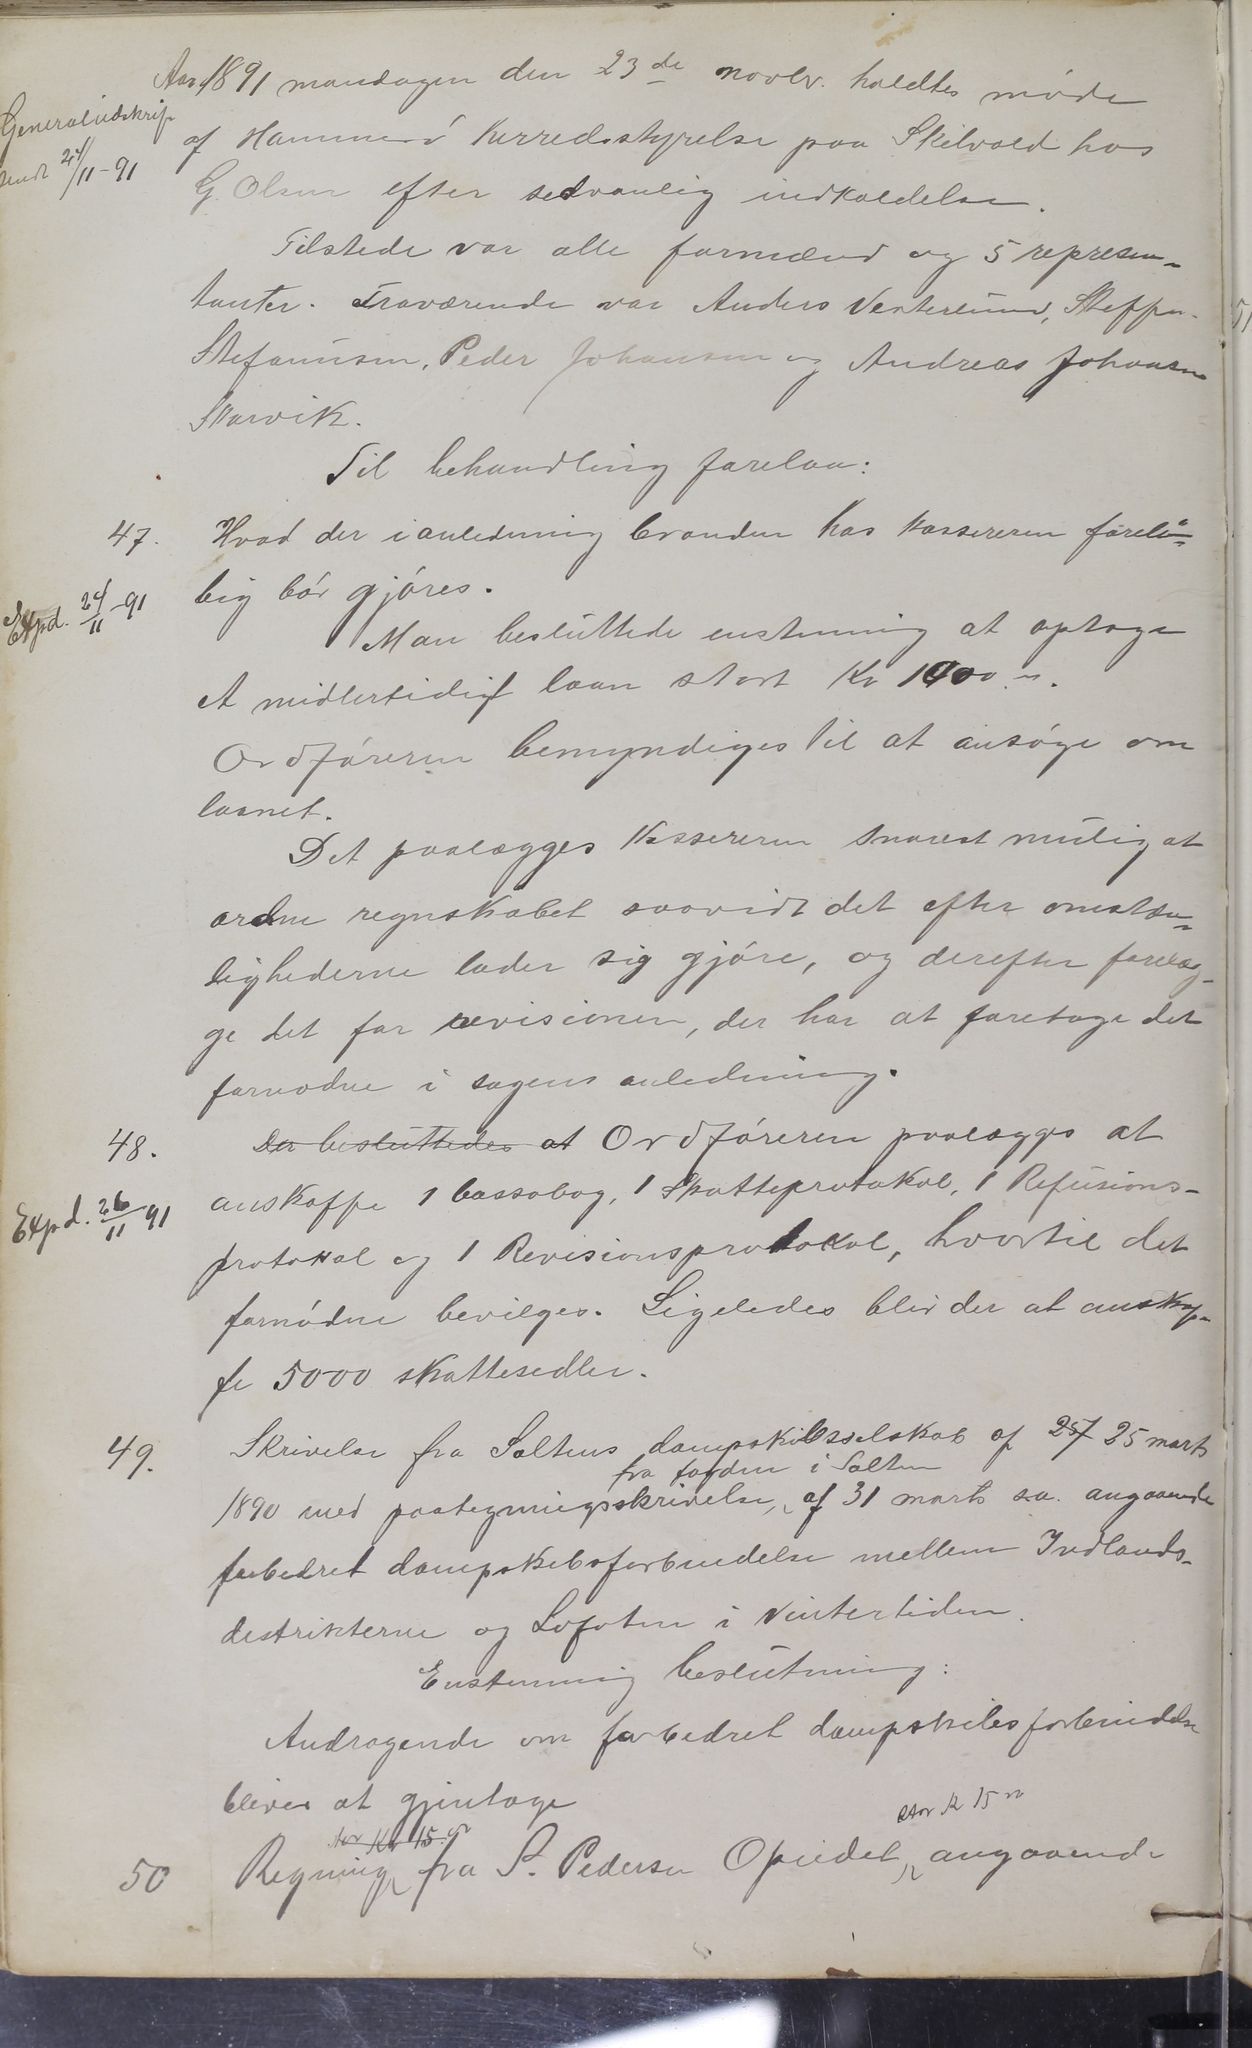 Aar 1891 mandagen den 23de novbr. holdtes møde
Generaludskrift
sendt 24/11-91
af Hammerø herredsstyrelse paa Skilvold hos
G. Olsen efter sedvanlig indkaldelse.
Tilstede var alle formænd og 5 represen-
tanter. Fraværende var Anders Vesterlund, Steffen
Stefanusen, Peder Johansen og Andreas Johansen
Skarvik.
Til behandling forelaa:
47. Hvad der i anledning branden hos kassereren forelø-
big bør gjøres.
Expd. 24/11-91
Man besluttede enstemmig at optage
et midlertidigt laan stort Kr 1400.
Ordføreren bemyndiges til at ansøge om
laanet.
Det paalægges Kassereren snarest mulig at
ordne regnskabet saavidt det efter omstæn-
dighederne lader sig gjøre, og derefter forelæg-
ge det for revisionen, der har at foretage det
fornødne i sagens anledning.
48. Der besluttedes at Ordføreren paalægges at
anskaffe 1 Cassabog, 1 Skatteprotokol, 1 Refusions-
Expd. 26/11-91
protokol og 1 Revisionsprotokol, hvortil det
fornødne bevilges. Ligeledes blir der at anskaf-
fe 5000 skattesedler.
49. Skrivelse fra Saltens dampskibsselskab af 257 25 marts
fra fogden i Salten
1890 med paategningsskrivelse, af 31 marts s.a. angaaende
forbedret dampskibsforbindelse mellem Indlands-
destrikterne og Lofoten i Vintertiden.
Enstemmig beslutning:
Andragende om forbedret dampskibsforbindelse
bliver at gjentage
stor Kr 15 00
stor Kr 15 00
50 Regning fra P. Pedersen Opeidet, angaaende